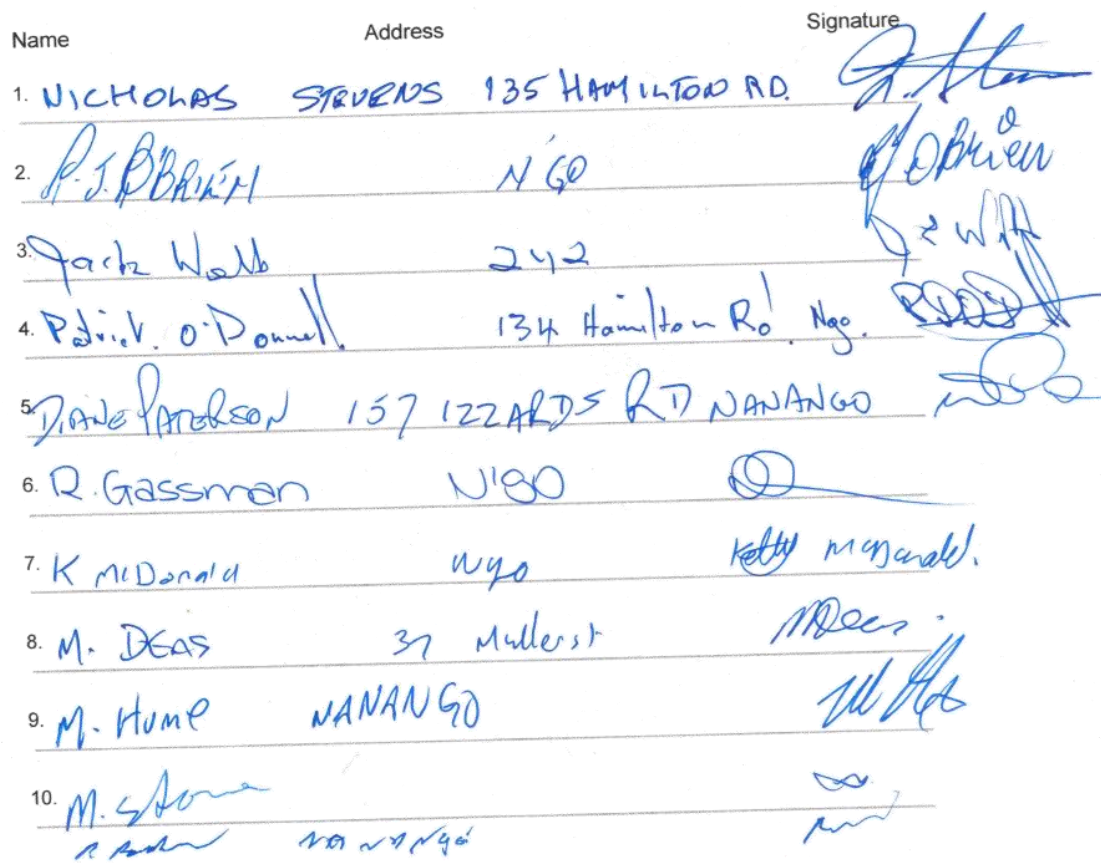 Name Address Signature
1. NICHOLAS STEVENS 135 HAMILTON RD.
2. P.J. O'BRIEN N'GO O'Brien
3. Jack Webb 242
4. Patrick O'Donnell. 134 Hamilton Rd. Ngo.
5. DIANE PATERSON 157 IZZARDS RD NANANGO
6. R. Gassman N'go
7. K McDonald Ngo Kelly McDonald.
8. M. DEAS 37 Muller st MDeas.
9. M. Hume NANANGO
10. M. Stone
NANANGO